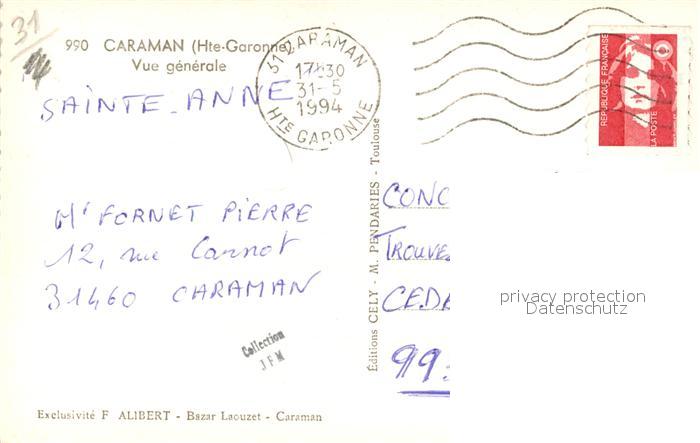 31
990 CARAMAN (Hte-Garonne)
Vue générale
31 CARAMAN
17H30
31-5
1994
HTE GARONNE
RÉPUBLIQUE FRANÇAISE
LA POSTE
SAINTE-ANNE
Mr FORNET PIERRE
12, rue Carnot
31460 CARAMAN
Collection
JFM
Éditions CELY - M. PENDARIES - Toulouse
CONC
TROUVE
CEDA
99
privacy protection
Datenschutz
Exclusivité F ALIBERT - Bazar Laouzet - Caraman